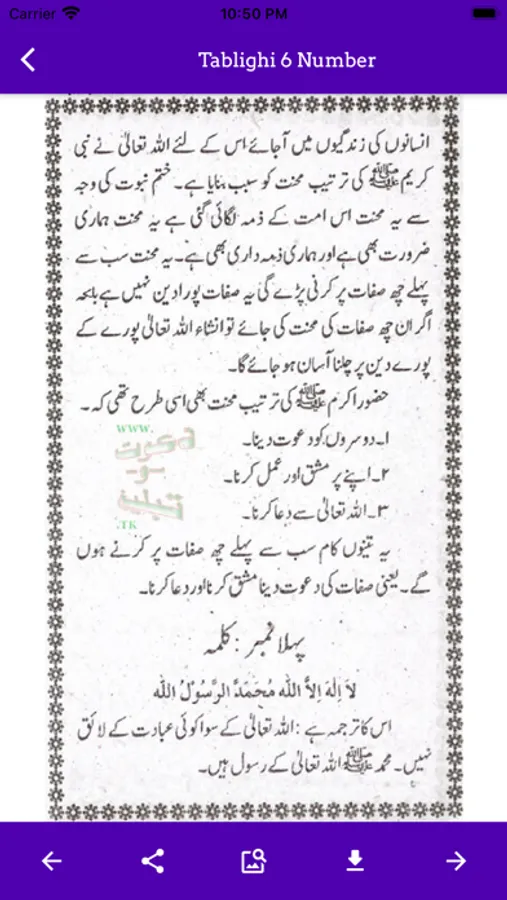 Carrier 10:50 PM
Tablighi 6 Number
انسانوں کی زندگیوں میں آجائے اس کے لئے اللہ تعالیٰ نے نبی
کریم ﷺ کی ترتیب محنت کو سبب بنایا ہے۔ ختم نبوت کی وجہ
سے یہ محنت اس امت کے ذمہ لگائی گئی ہے یہ محنت ہماری
ضرورت بھی ہے اور ہماری ذمہ داری بھی ہے۔ یہ محنت سب سے
پہلے چھ صفات پر کرنی پڑے گی یہ صفات پورا دین نہیں ہے بلکہ
اگر ان چھ صفات کی محنت کی جائے تو انشاء اللہ تعالیٰ پورے کے
پورے دین پر چلنا آسان ہو جائے گا۔
حضور اکرم ﷺ کی ترتیب محنت بھی اسی طرح تھی کہ۔
۱۔ دوسروں کو دعوت دینا۔
۲۔ اپنے پر مشق اور عمل کرنا۔
۳۔ اللہ تعالیٰ سے دعا کرنا۔
www.
دعوت
-و-
تبلیغ
.TK
یہ تینوں کام سب سے پہلے چھ صفات پر کرنے ہوں
گے۔ یعنی صفات کی دعوت دینا مشق کرنا اور دعا کرنا۔
پہلا نمبر : کلمہ
لَا اِلٰهَ اِلاَّ الله مُحَمَّدٌ الرَّسُوْلُ الله
اس کا ترجمہ ہے : اللہ تعالیٰ کے سوا کوئی عبادت کے لائق
نہیں۔ محمد ﷺ اللہ تعالیٰ کے رسول ہیں۔